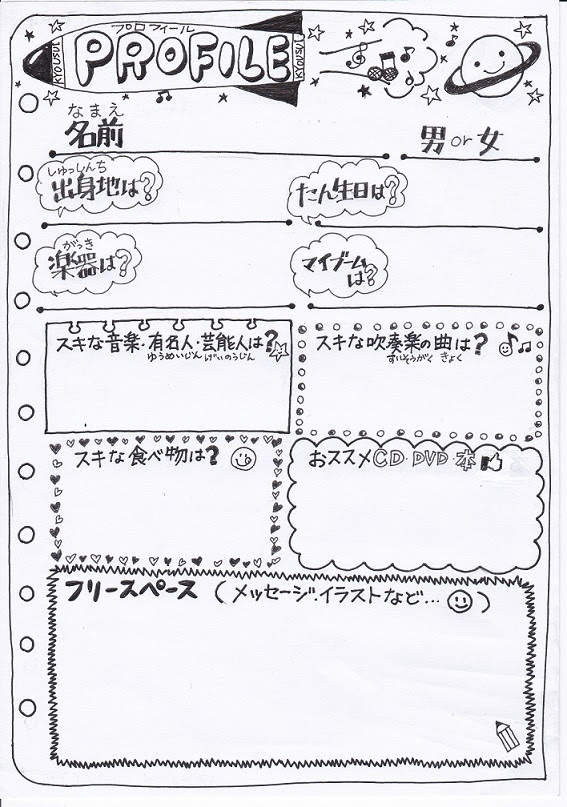 プロフィール
KYOUSUI PROFILE KYOUSUI
なまえ
名前 男 or 女
しゅっしんち
出身地は? たん生日は?
がっき
楽器は? マイブームは?
スキな音楽・有名人・芸能人は?
ゆうめいじん げいのうじん
スキな吹奏楽の曲は?
すいそうがく きょく
スキな食べ物は?
おススメCD・DVD・本
フリースペース (メッセージ・イラストなど... )